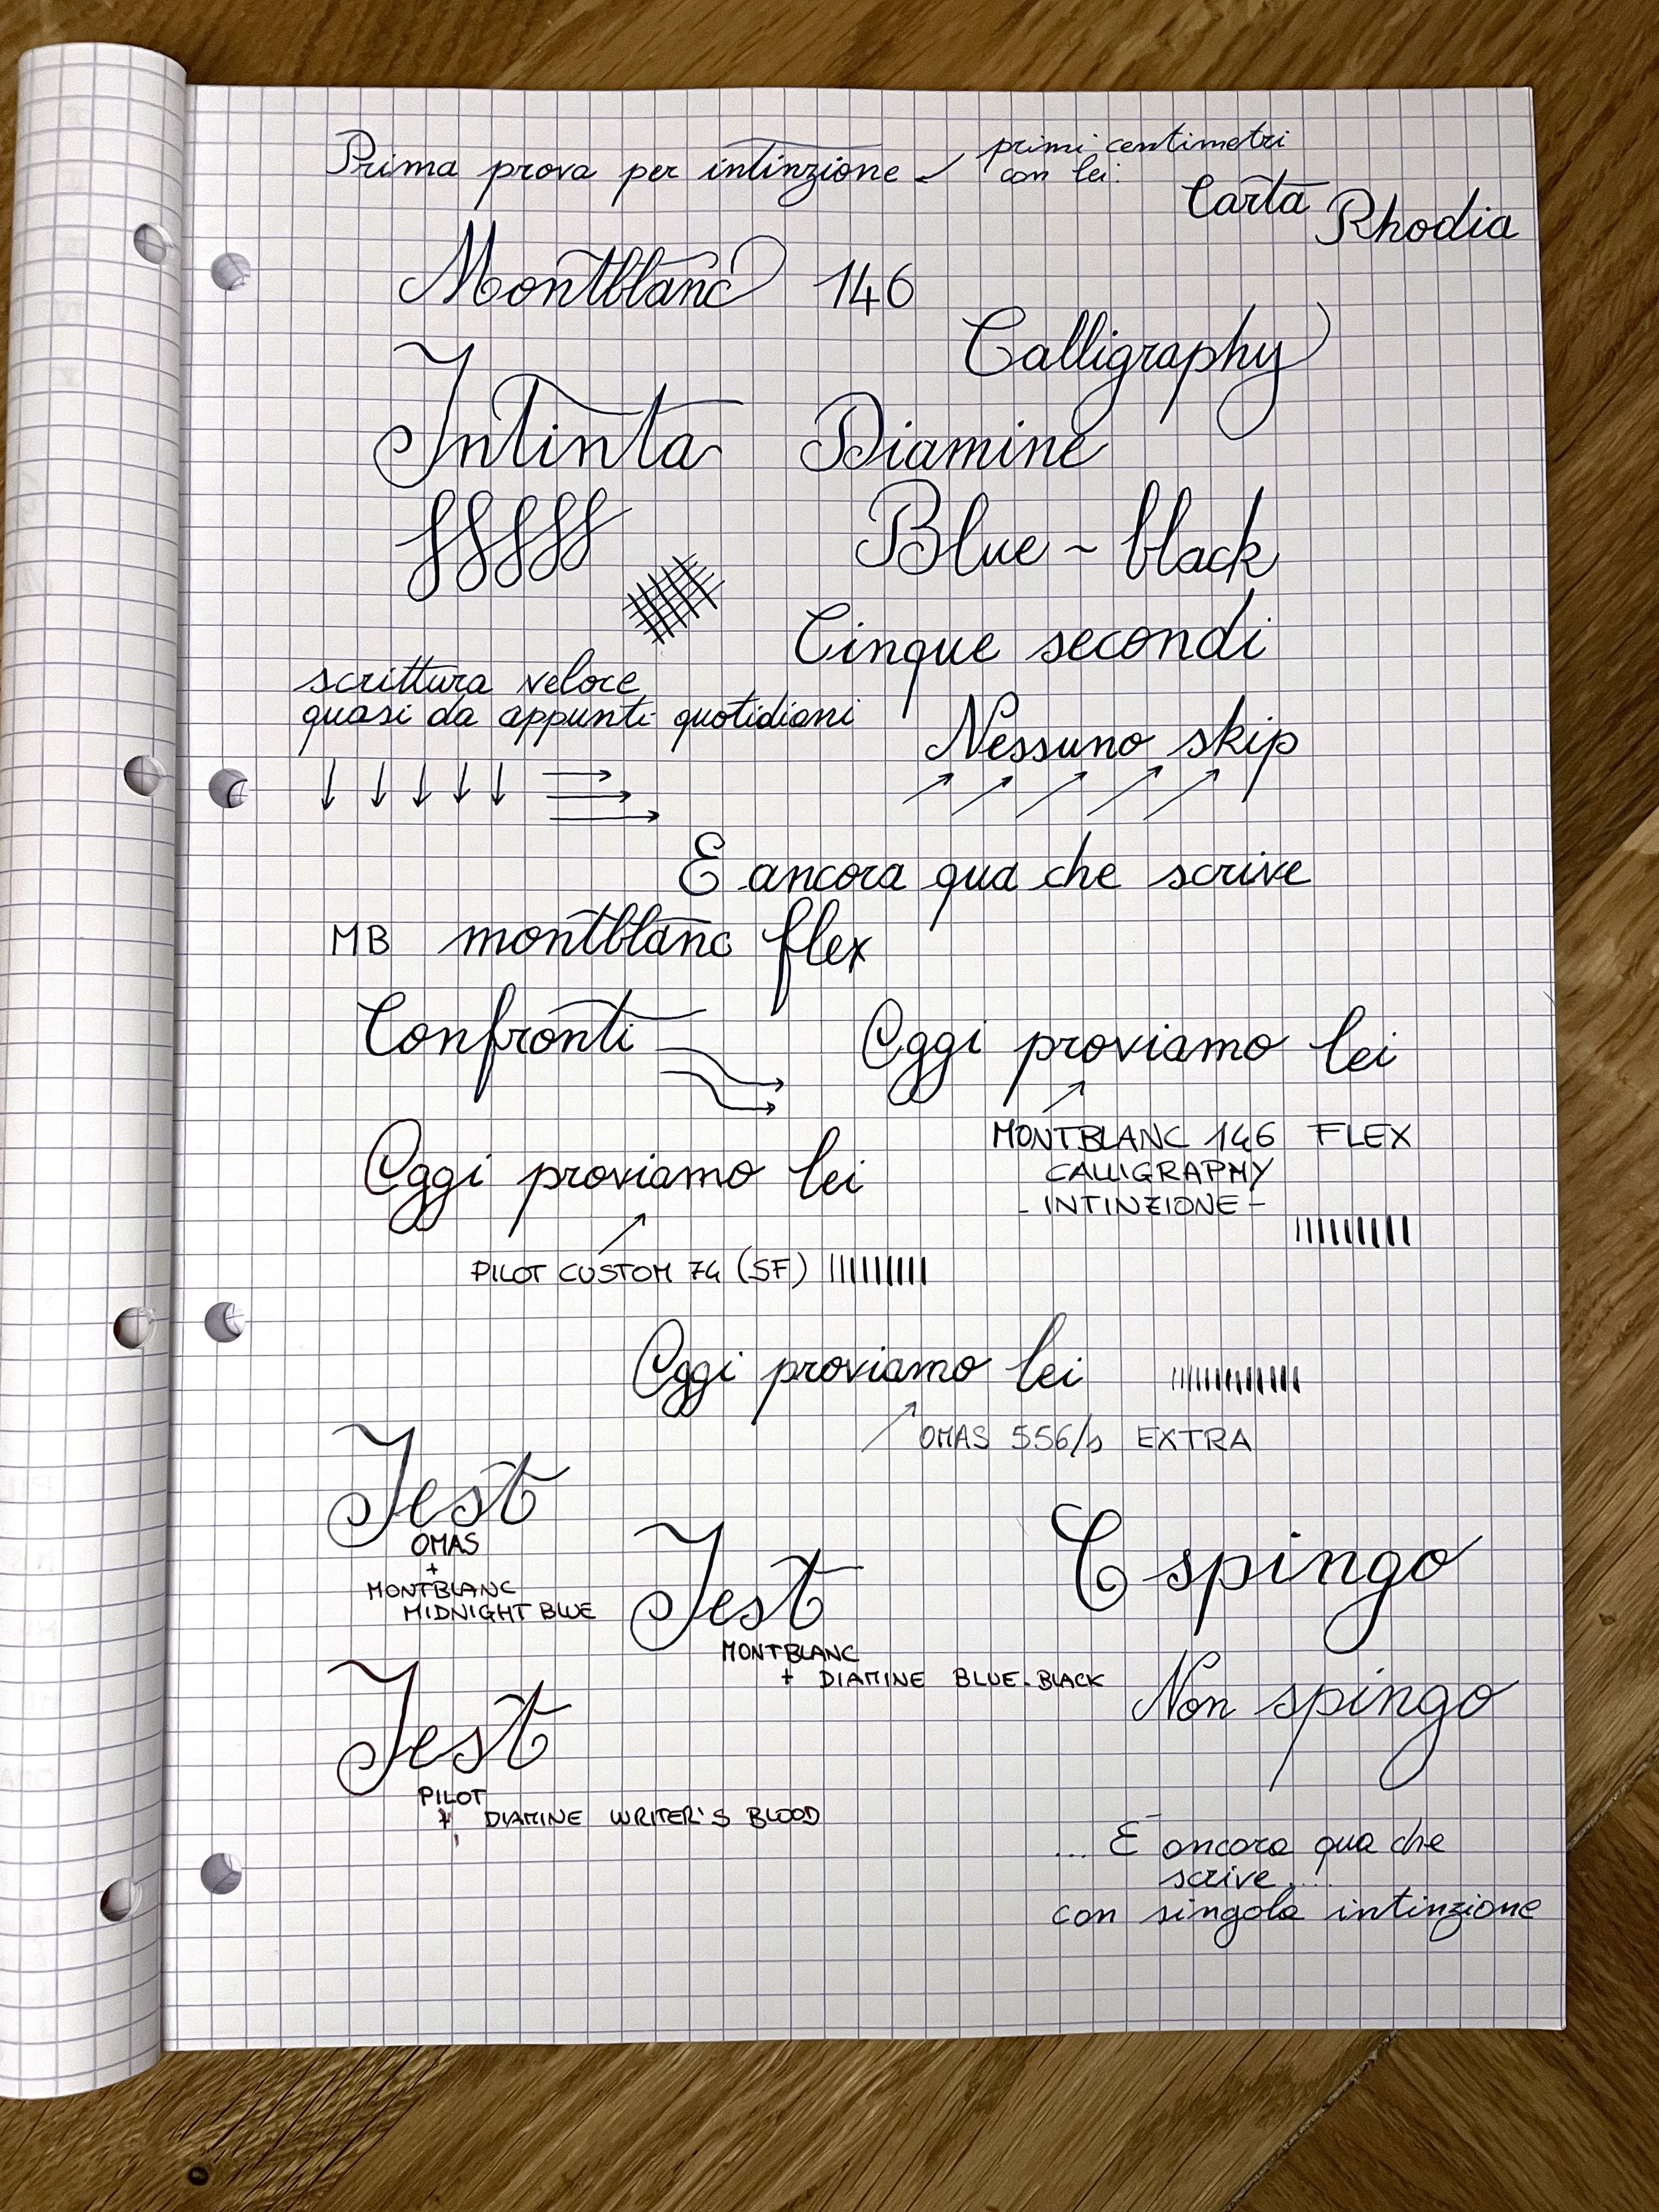 Prima prova per intinzione
primi centimetri
con lei.
Carta Rhodia
Montblanc 146
Calligraphy
Intinta Diamine
Blue-black
Cinque secondi
scrittura veloce
quasi da appunti quotidiani
Nessuno skip
E ancora qua che scrive
MB montblanc flex
Confronti
Oggi proviamo lei
MONTBLANC 146 FLEX
CALLIGRAPHY
- INTINZIONE -
Oggi proviamo lei
PILOT CUSTOM 74 (SF)
Oggi proviamo lei
OMAS 556/s EXTRA
Test
OMAS
+
MONTBLANC
MIDNIGHT BLUE
Test
MONTBLANC
+ DIAMINE BLUE-BLACK
spingo
Non spingo
Test
PILOT
+ DIAMINE WRITER'S BLOOD
... E ancora qua che
scrive....
con singola intinzione